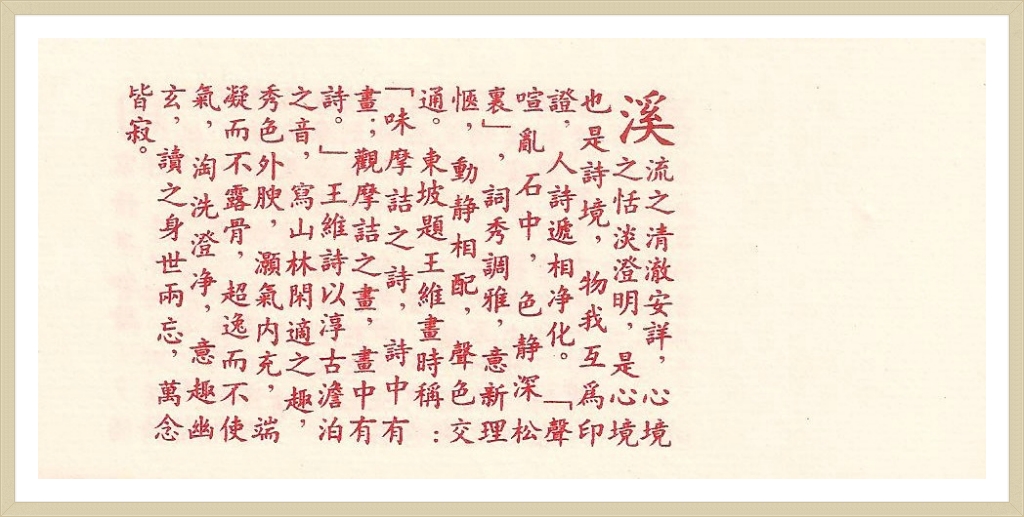 溪流之清澈安詳，心境
之恬淡澄明，是心境
也是詩境，物我互爲印
證，人詩遞相净化。「聲
喧亂石中，色静深松
裏」，詞秀調雅，意新理
愜，動静相配，聲色交
通。東坡題王維畫時稱：
「味摩詰之詩，詩中有
畫；觀摩詰之畫，畫中有
詩。」王維詩以淳古澹泊
之音，寫山林閑適之趣，
秀色外腴，灝氣内充，端
凝而不露骨，超逸而不使
氣，淘洗澄净，意趣幽
玄，讀之身世兩忘，萬念
皆寂。